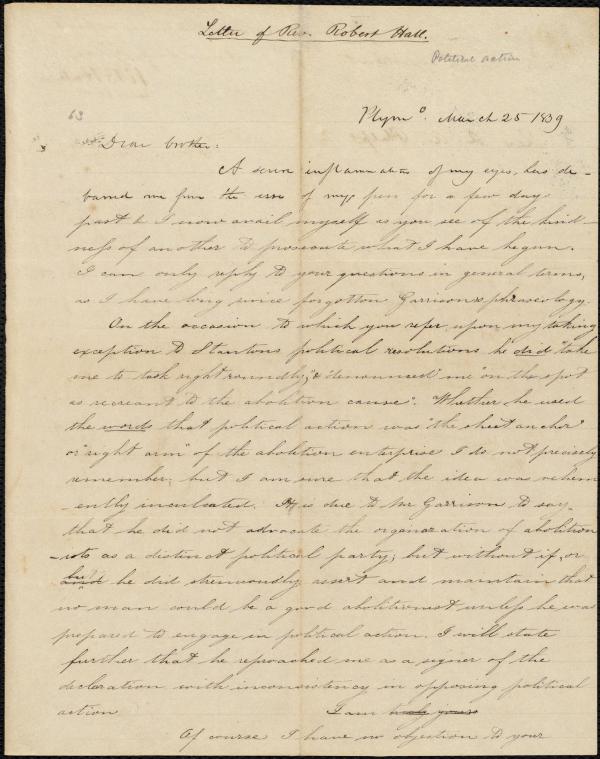 Letter of Rev. Robert Hall.
Political action
Plymo. March 25 1839
63
Dear brother:
A severe inflammation of my eyes, has de-
barred me from the use of my pen for a few days
past & I now avail myself as you see of the kind-
ness of another to prosecute what I have begun.
I can only reply to your questions in general terms,
as I have long since forgotton Garrisons phraseology.
On the occasion to which you refer, upon my taking
exception to Stantons political resolutions he did "take
me to task right roundly," & "denounced" me "on the spot
as recreant to the abolition cause". Whether he used
the words that political action was "the sheet anchor"
or "right arm" of the abolition enterprise I do not precisely
remember; but I am sure that the idea was vehem
ently inculcated. It is due to Mr Garrison to say,
that he did not advocate the organization of abolition
-ists as a distinct political party; but without if, or
but he did strenuously assert and maintain that
no man could be a good abolitionist unless he was
prepared to engage in political action. I will state
further that he reproached me as a signer of the
declaration with inconsistency in opposing political
action I am truly yours
Of course I have no objection to your